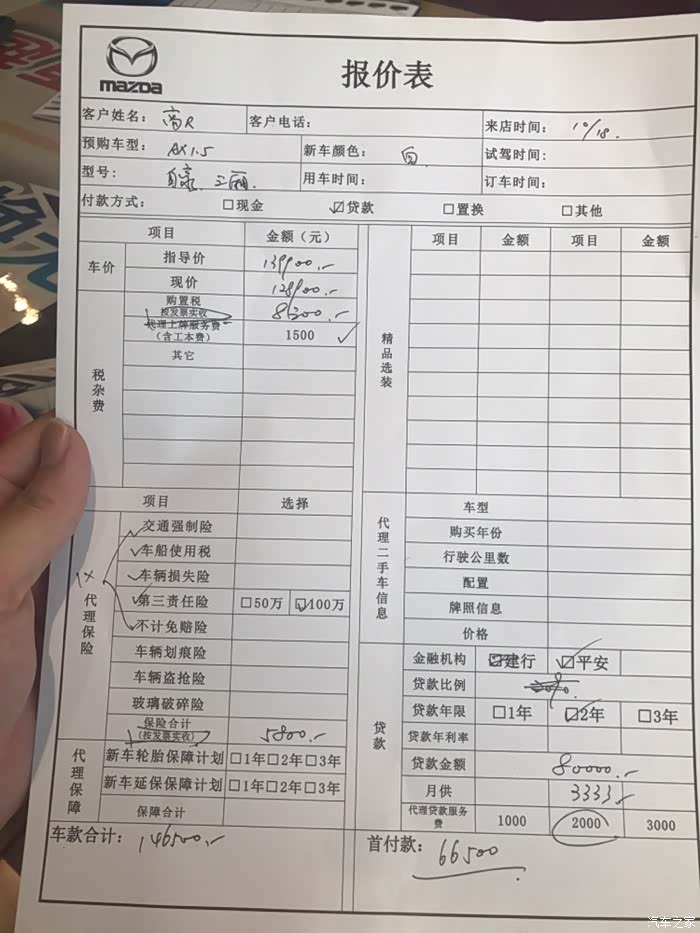 mazda
报价表
客户姓名: 高R 客户电话: 来店时间: 10/18.
预购车型: AX1.5 新车颜色: 白 试驾时间:
型号: 自豪. 三厢. 用车时间: 订车时间:
付款方式: □现金 ☑贷款 □置换 □其他
项目 金额（元） 项目 金额 项目 金额
车价 指导价 139900.-
现价 128900.-
税杂费 购置税 按发票实收 8300.-
代理上牌服务费 (含工本费) 1500 ✓
其它
精品选装
项目 选择
代理保险
1×
交通强制险
✓车船使用税
✓车辆损失险
✓第三责任险 □50万 ☑100万
不计免赔险
车辆划痕险
车辆盗抢险
玻璃破碎险
保险合计 (按发票实收) 5800.-
代理保障 新车轮胎保障计划 □1年□2年□3年
新车延保保障计划 □1年□2年□3年
保障合计
车款合计: 146500.-
代理二手车信息
车型
购买年份
行驶公里数
配置
牌照信息
价格
贷款
金融机构 建行 ☑平安
贷款比例
贷款年限 □1年 ☑2年 □3年
贷款年利率
贷款金额 80000.-
月供 3333.-
代理贷款服务费 1000 2000 3000
首付款: 66500
汽车之家